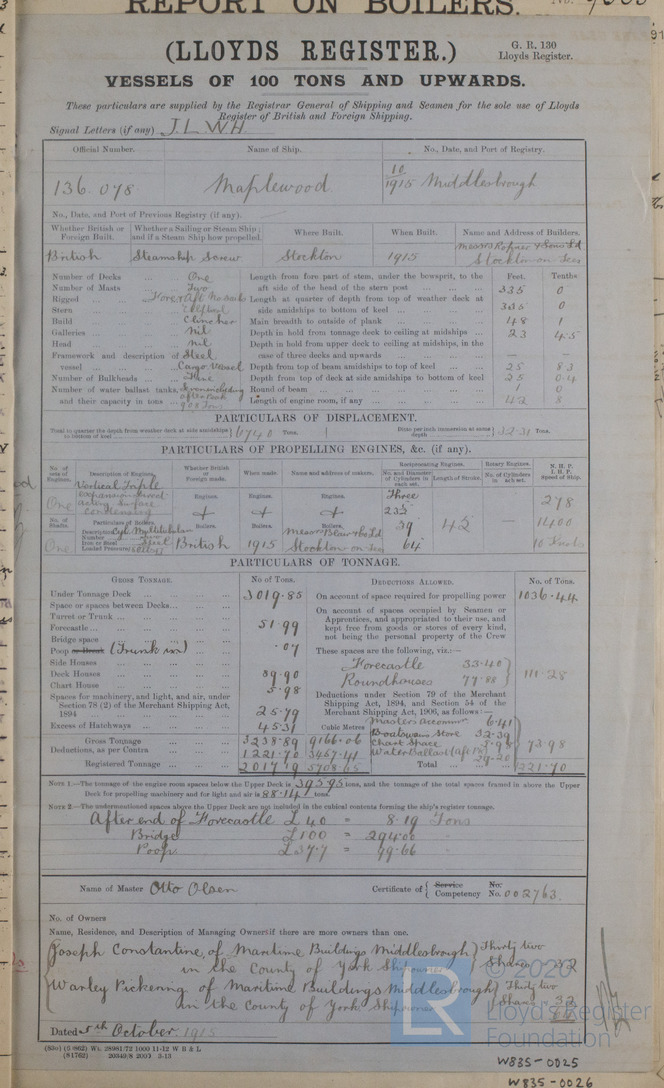 REPORT ON BOILERS.
(LLOYDS REGISTER.)
G. R. 130
Lloyds Register.
VESSELS OF 100 TONS AND UPWARDS.
These particulars are supplied by the Registrar General of Shipping and Seamen for the sole use of Lloyds
Register of British and Foreign Shipping.
Signal Letters (if any) J.L.W.H
Official Number. Name of Ship. No., Date, and Port of Registry.
136.078 Maplewood 10/1915 Middlesbrough
No., Date, and Port of Previous Registry (if any).
Whether British or Foreign Built. Whether a Sailing or Steam Ship; and if a Steam Ship how propelled. Where Built. When Built. Name and Address of Builders.
British Steamship Screw Stockton 1915 Messrs Ropner & Sons Ld Stockton on Tees
Number of Decks One Length from fore part of stem, under the bowsprit, to the Feet. Tenths
Number of Masts Two aft side of the head of the stern post 335 0
Rigged Fore & Aft Length at quarter of depth from top of weather deck at
Stern Elliptical side amidships to bottom of keel 335 0
Build Clincher Main breadth to outside of plank 48 1
Galleries nil Depth in hold from tonnage deck to ceiling at midships 23 4.5
Head nil Depth in hold from upper deck to ceiling at midships, in the
Framework and description of Steel case of three decks and upwards — —
vessel Cargo Vessel Depth from top of beam amidships to top of keel 25 83
Number of Bulkheads Depth from top of deck at side amidships to bottom of keel 25 04
Number of water ballast tanks, Seven including Round of beam 1 0
and their capacity in tons after peak 900 Tons Length of engine room, if any 42 8
PARTICULARS OF DISPLACEMENT.
Total to quarter the depth from weather deck at side amidships to bottom of keel 6740 Tons. Ditto per inch immersion at same depth 32.31 Tons.
PARTICULARS OF PROPELLING ENGINES, &c. (if any).
No. of sets of Engines. Description of Engines. Whether British or Foreign made. When made. Name and address of makers. Reciprocating Engines. Rotary Engines. N.H.P. I.H.P. Speed of Ship.
No. and Diameter of Cylinders in each set. Length of Stroke. No. of Cylinders in each set.
One Vertical Triple expansion direct acting surface condensing Engines. Engines. Engines. Three 23½ 278
No. of Shafts. Particulars of Boilers. Boilers. Boilers. Boilers. 39 42 — 1400
One Description Cyl. Multitubular Number Iron or Steel Steel Loaded Pressure British 1915 Messrs Blair & Co Ld Stockton on Tees 64 10 Knots
PARTICULARS OF TONNAGE.
GROSS TONNAGE. No of Tons. DEDUCTIONS ALLOWED. No. of Tons.
Under Tonnage Deck 3019.85 On account of space required for propelling power 1036.44
Space or spaces between Decks On account of spaces occupied by Seamen or
Turret or Trunk Apprentices, and appropriated to their use, and
Forecastle 51.99 kept free from goods or stores of every kind,
Bridge space not being the personal property of the Crew
Poop or Break (Trunk in) .07 These spaces are the following, viz.:—
Side Houses Forecastle 33.40
Deck Houses 89.90 Roundhouses 77.88 111.28
Chart House 5.98 Deductions under Section 79 of the Merchant
Spaces for machinery, and light, and air, under Shipping Act, 1894, and Section 54 of the
Section 78 (2) of the Merchant Shipping Act, Merchant Shipping Act, 1906, as follows:—
1894 25.79 Masters accommn 6.41
Excess of Hatchways 45.31 Cubic Metres Boatswains Store 32.39
Gross Tonnage 3238.89 9166.06 Chart Space 5.98 73.98
Deductions, as per Contra 1221.70 3457.41 Water Ballast (aft Pk) 29.20
Registered Tonnage 2017.19 5708.65 Total 1221.70
NOTE 1.—The tonnage of the engine room spaces below the Upper Deck is 395.95 tons, and the tonnage of the total spaces framed in above the Upper
Deck for propelling machinery and for light and air is 88.141 tons.
NOTE 2.—The undermentioned spaces above the Upper Deck are not included in the cubical contents forming the ship's register tonnage.
After end of Forecastle £ 4.0 = 8.19 Tons
Bridge £ 100 = 294.00 "
Poop £ 37.7 = 99.66 "
Name of Master Otto Olsen Certificate of { Service No. Competency No. 002763.
No. of Owners
Name, Residence, and Description of Managing Owner if there are more owners than one.
Joseph Constantine, of Maritime Buildings Middlesbrough Thirty two
in the County of York Shipowner Shares 32
Warley Pickering of Maritime Buildings Middlesbrough Thirty two
in the County of York Shipowner Shares 32
64
Dated 5th October. 1915
© 2020
Lloyd's Register
Foundation
LR
W835-0025
W835-0026